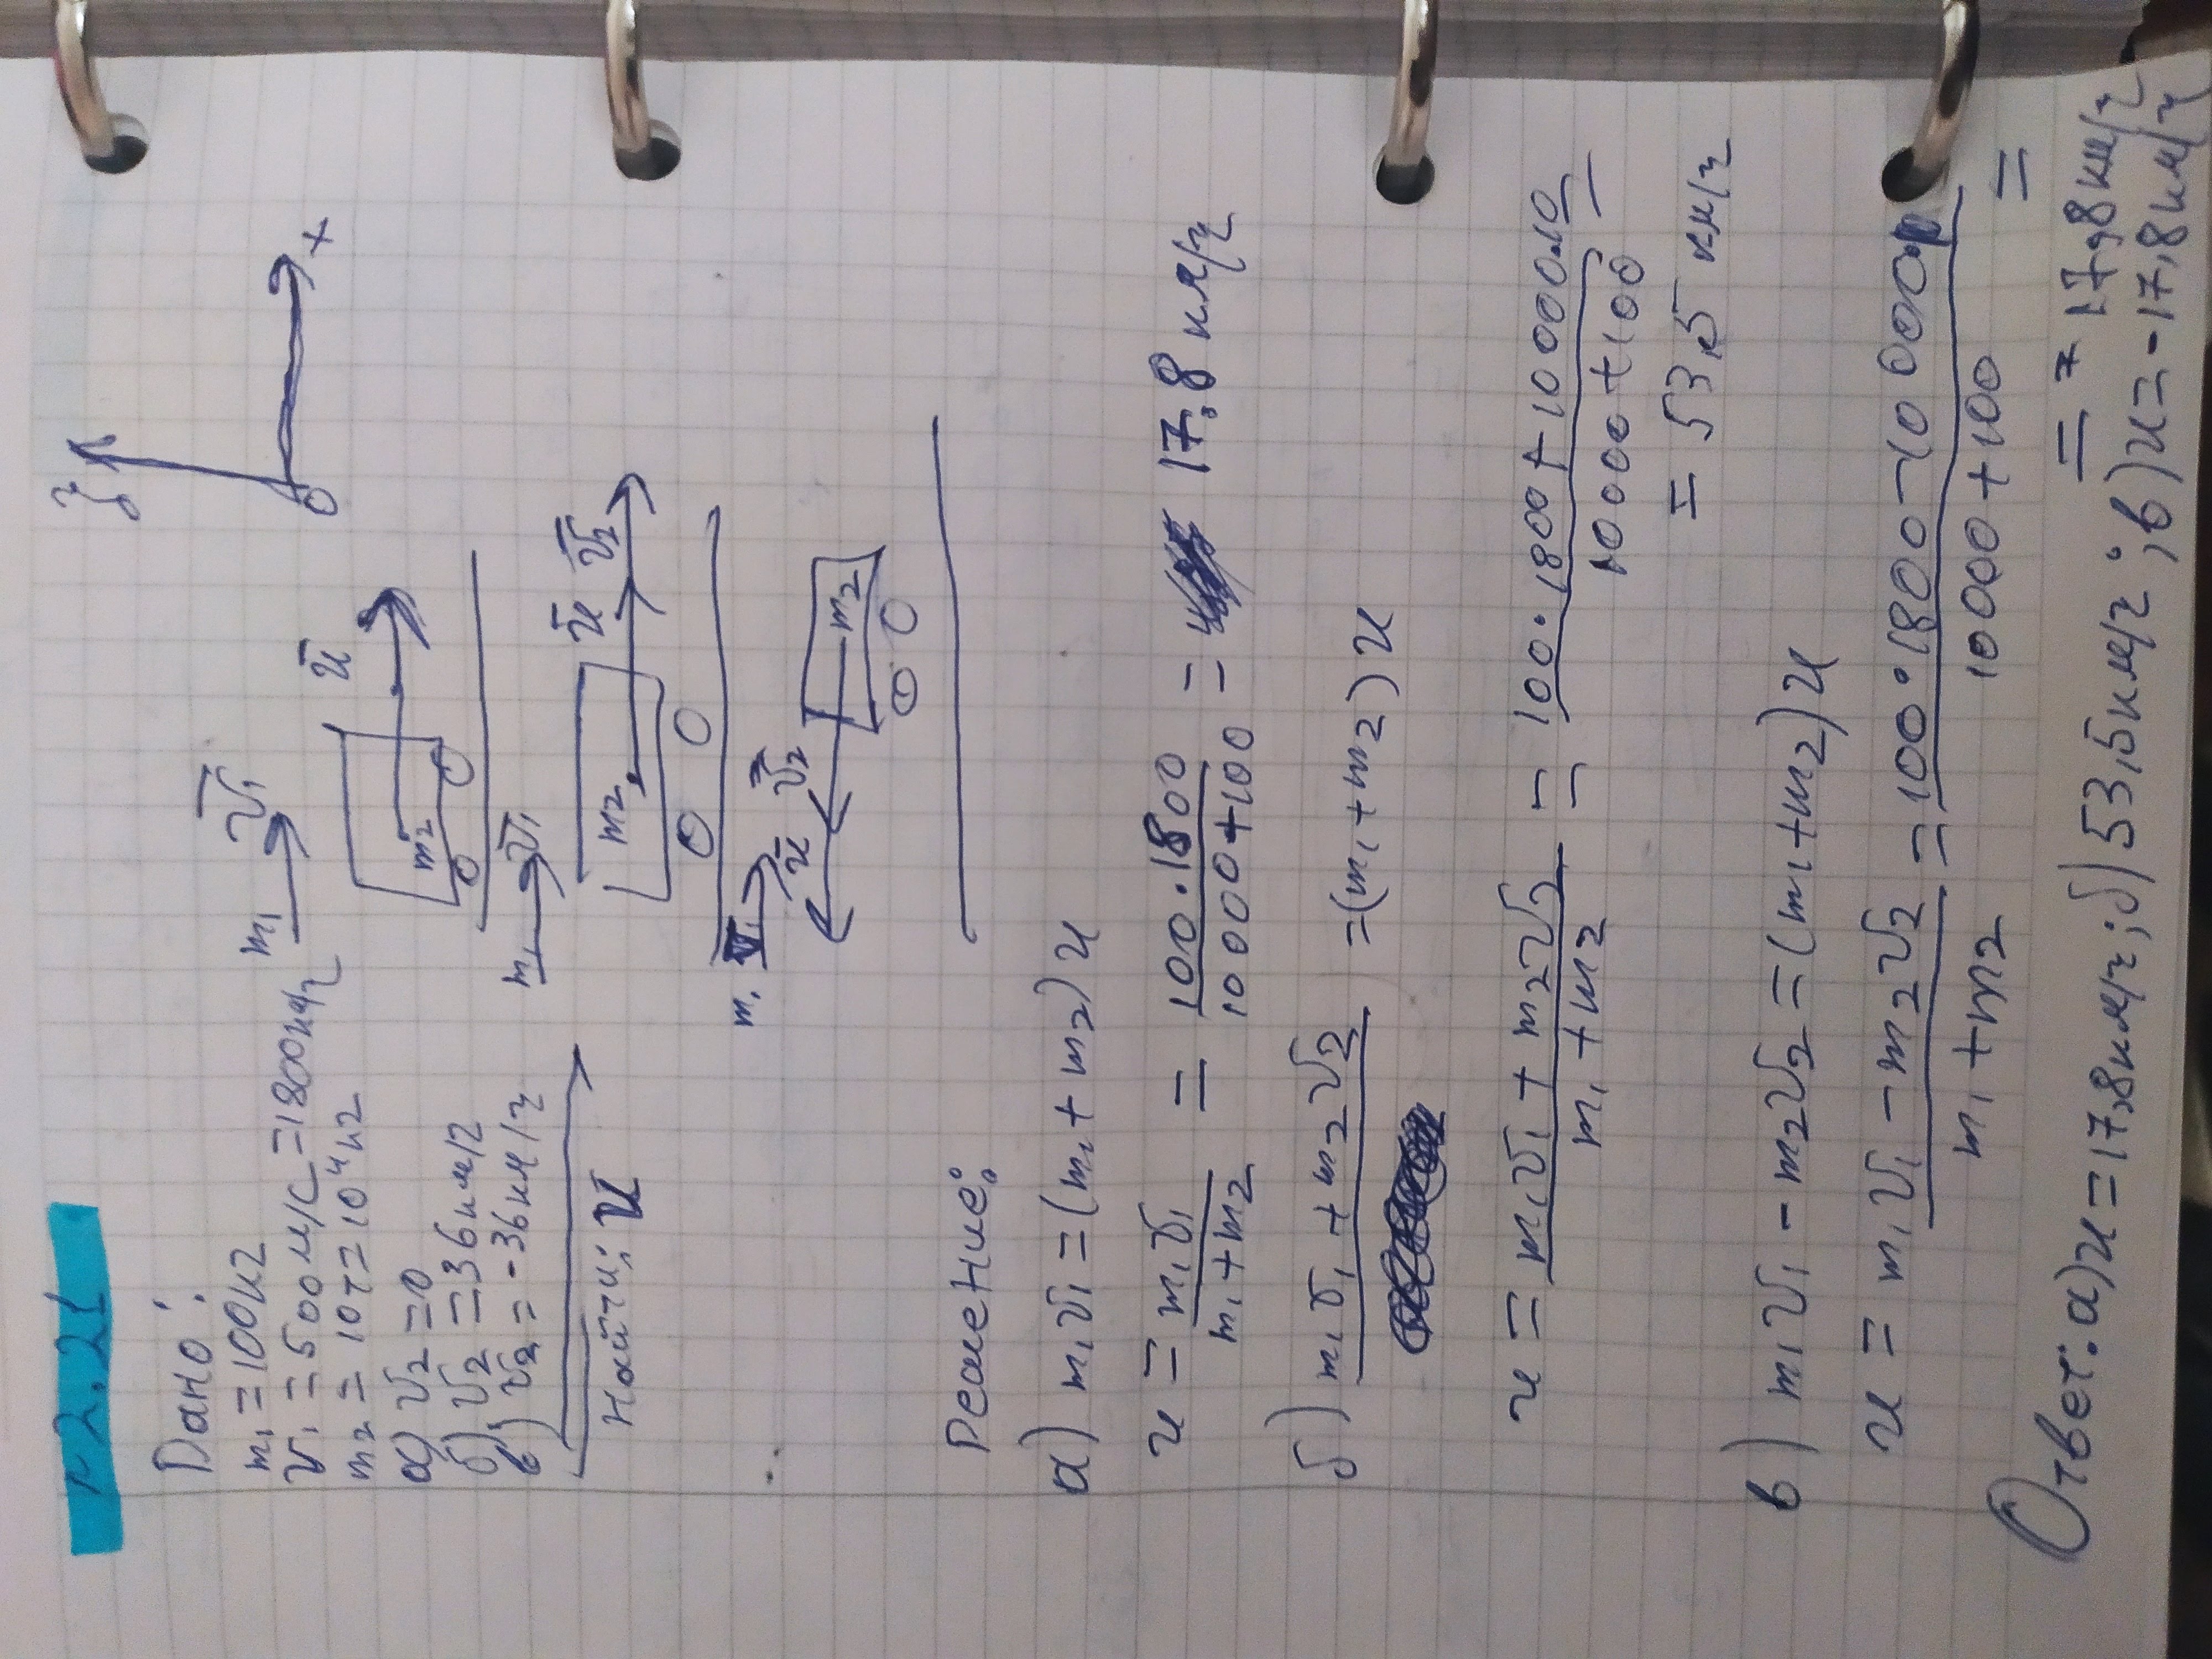 №2.21
Дано:
m₁ = 100кг
v₁ = 500м/с = 1800км/ч
m₂ = 10т = 10⁴кг
а) v₂ = 0
б) v₂ = 36км/ч
в) v₂ = -36км/ч
Найти: u
m₁ v̅₁
u̅
m₂
m₁ v̅₁
m₂ u̅ v̅₂
m₁ v̅₁
u̅ v̅₂
m₂
y
0 x
Решение:
а) m₁v₁ = (m₁ + m₂)u
u = m₁v₁/(m₁+m₂) = 100·1800/(10000+100) = 17,8 км/ч
б) m₁v₁ + m₂v₂ = (m₁+m₂)u
u = (m₁v₁ + m₂v₂)/(m₁+m₂) = (100·1800+10000·10)/(10000+100) =
= 53,5 км/ч
в) m₁v₁ - m₂v₂ = (m₁+m₂)u
u = (m₁v₁ - m₂v₂)/(m₁+m₂) = (100·1800-10000·)/(10000+100) =
= -17,8км/ч
Ответ: а) u = 17,8км/ч; б) 53,5км/ч; в) u = -17,8км/ч